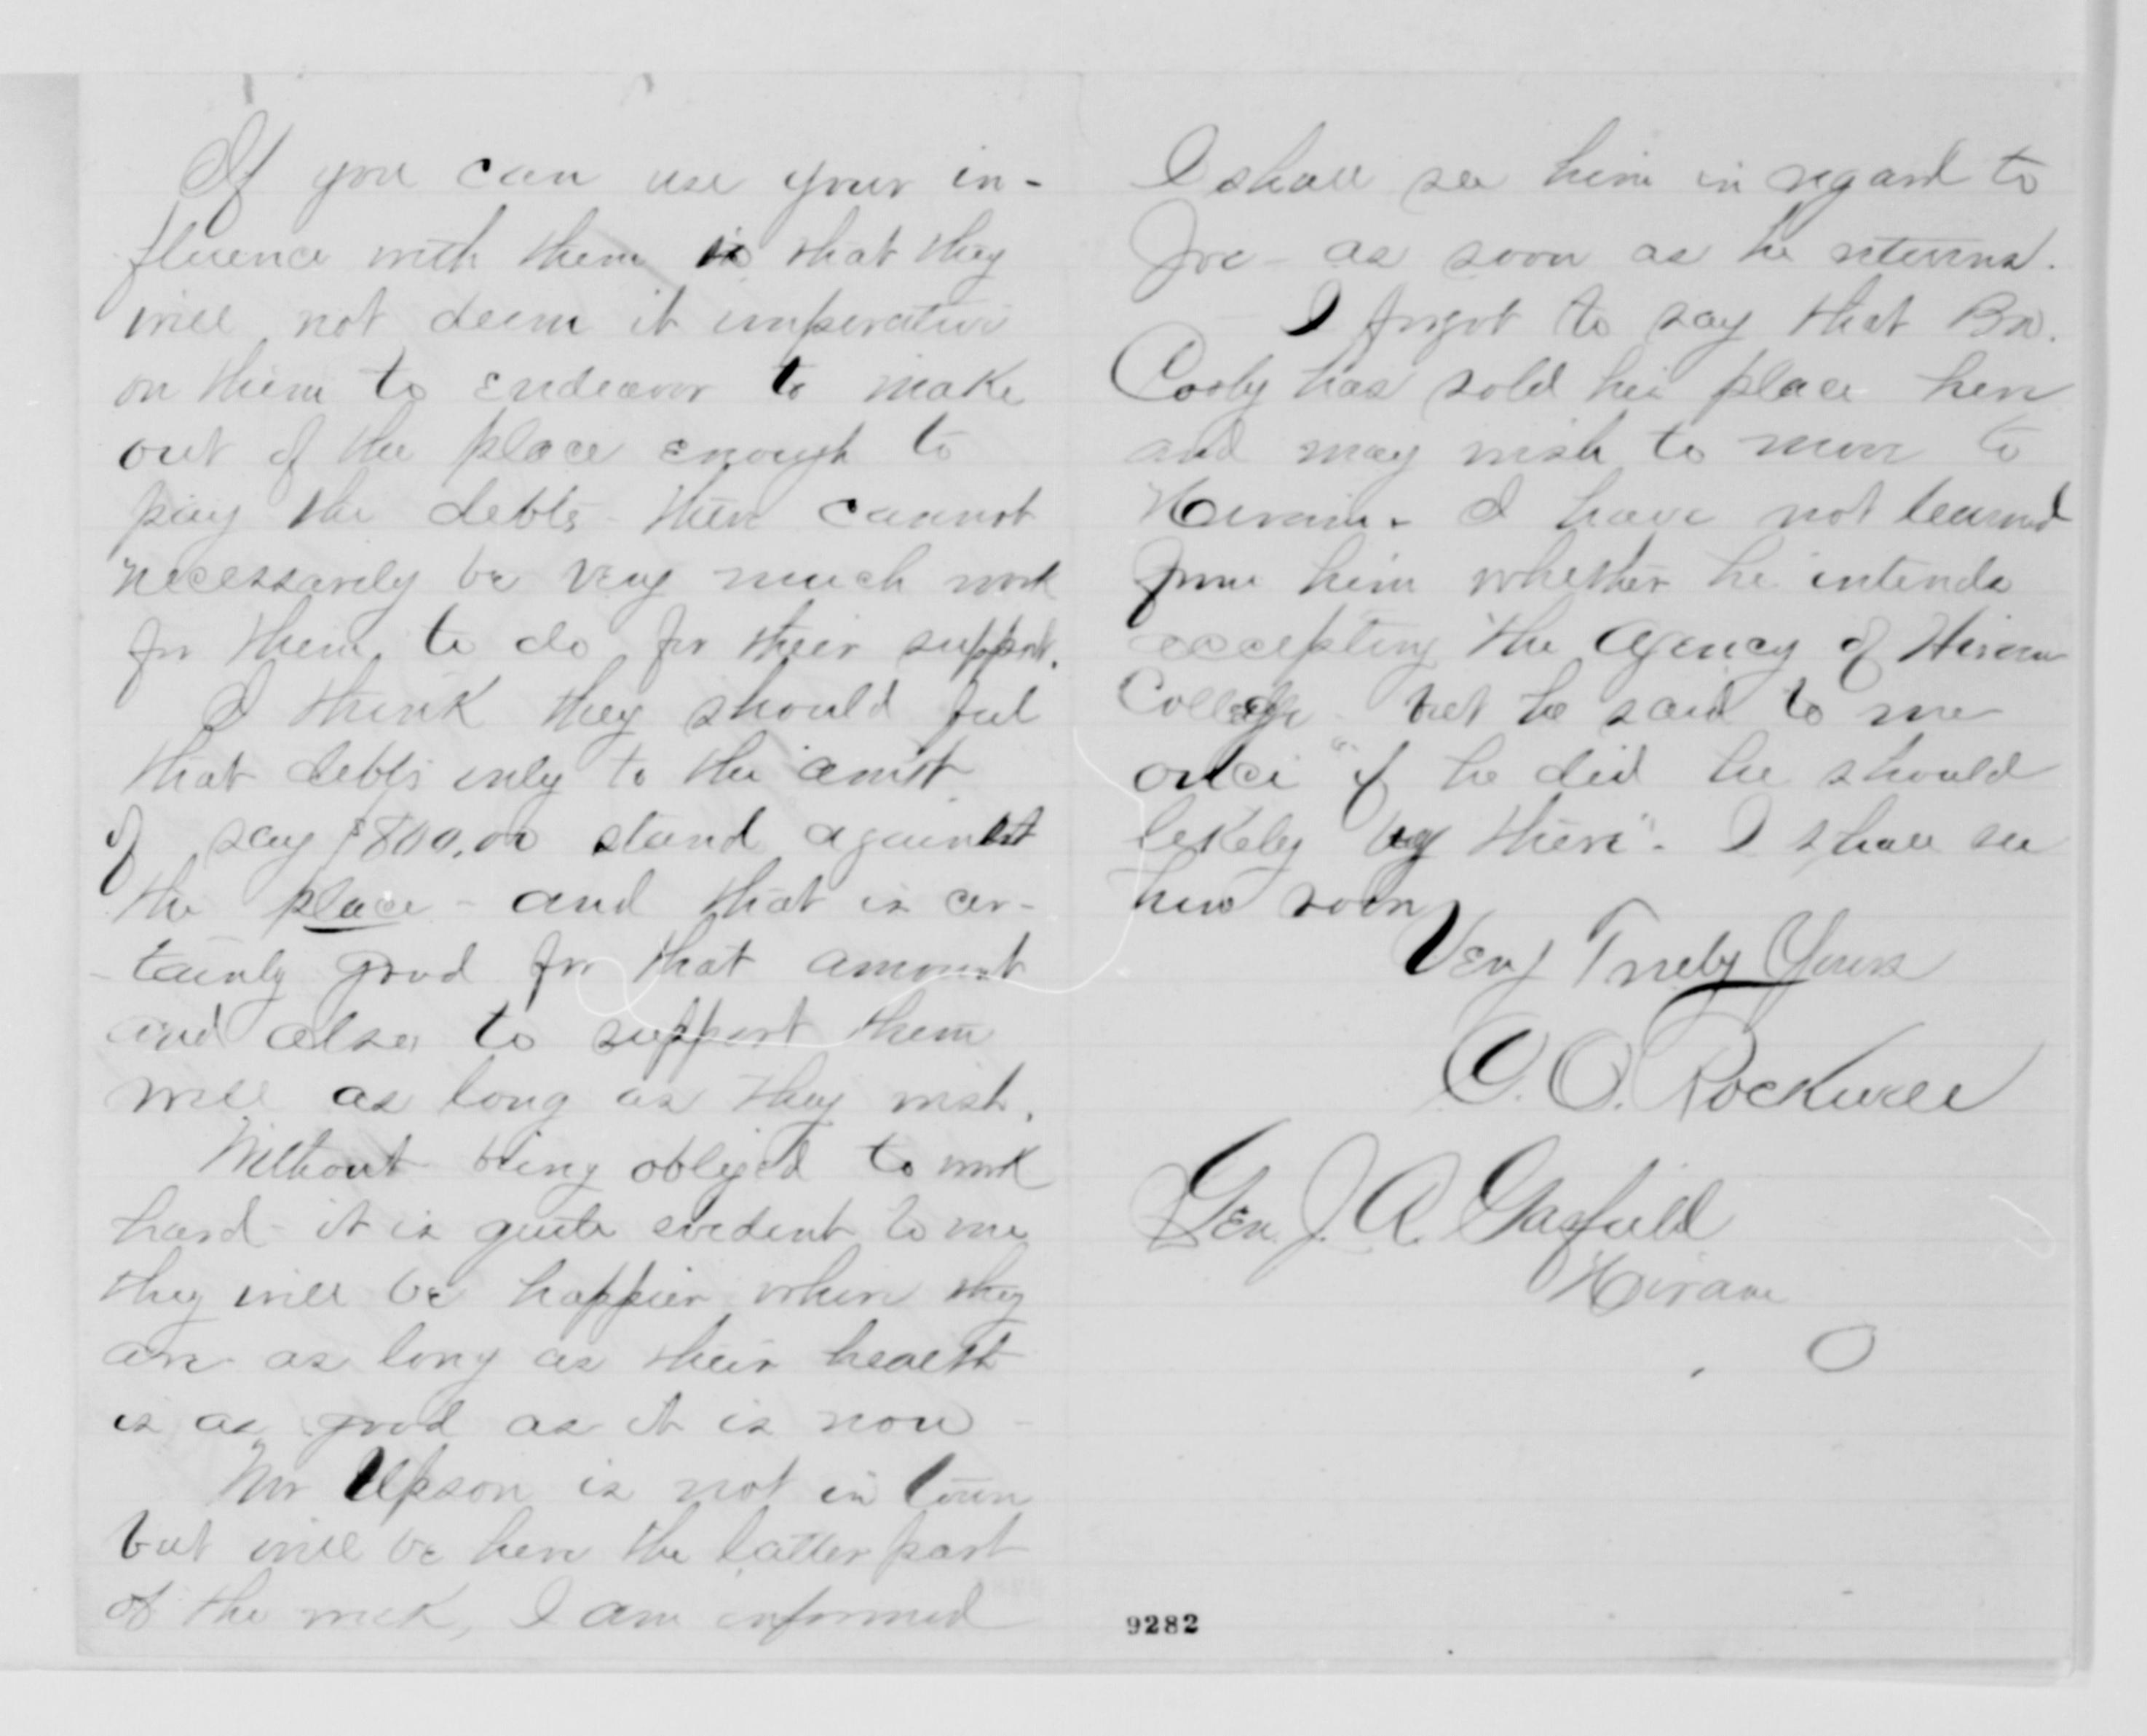 If you can use your in-
fluence with them so that they
will not deem it imperative
on them to endeavor to make
out of the place enough to
pay the debts - there cannot
necessarily be very much work
for them to do for their support.
I think they should feel
that debts only to the amt
of say $800.00 stand against
the place - and that is cer-
tainly good for that amount
and also to support them
well as long as they wish.
Without being obliged to work
hard - it is quite evident to me
they will be happier where they
are as long as their health
is as good as it is now -
Mr Upson is not in town
but will be here the latter part
of the week, I am informed
I shall see him in regard to
Joe - as soon as he returns.
I forgot to say that Bro.
has sold his place here
and may wish to move to
Hiram. I have not learned
from him whether he intends
accepting the agency of Hiram
College - but he said to me
once "if he did he should
likely buy there". I shall see
him soon
Very Truly Yours
C. O. Rockwell
Gen. J. A. Garfield
Hiram
O
9282